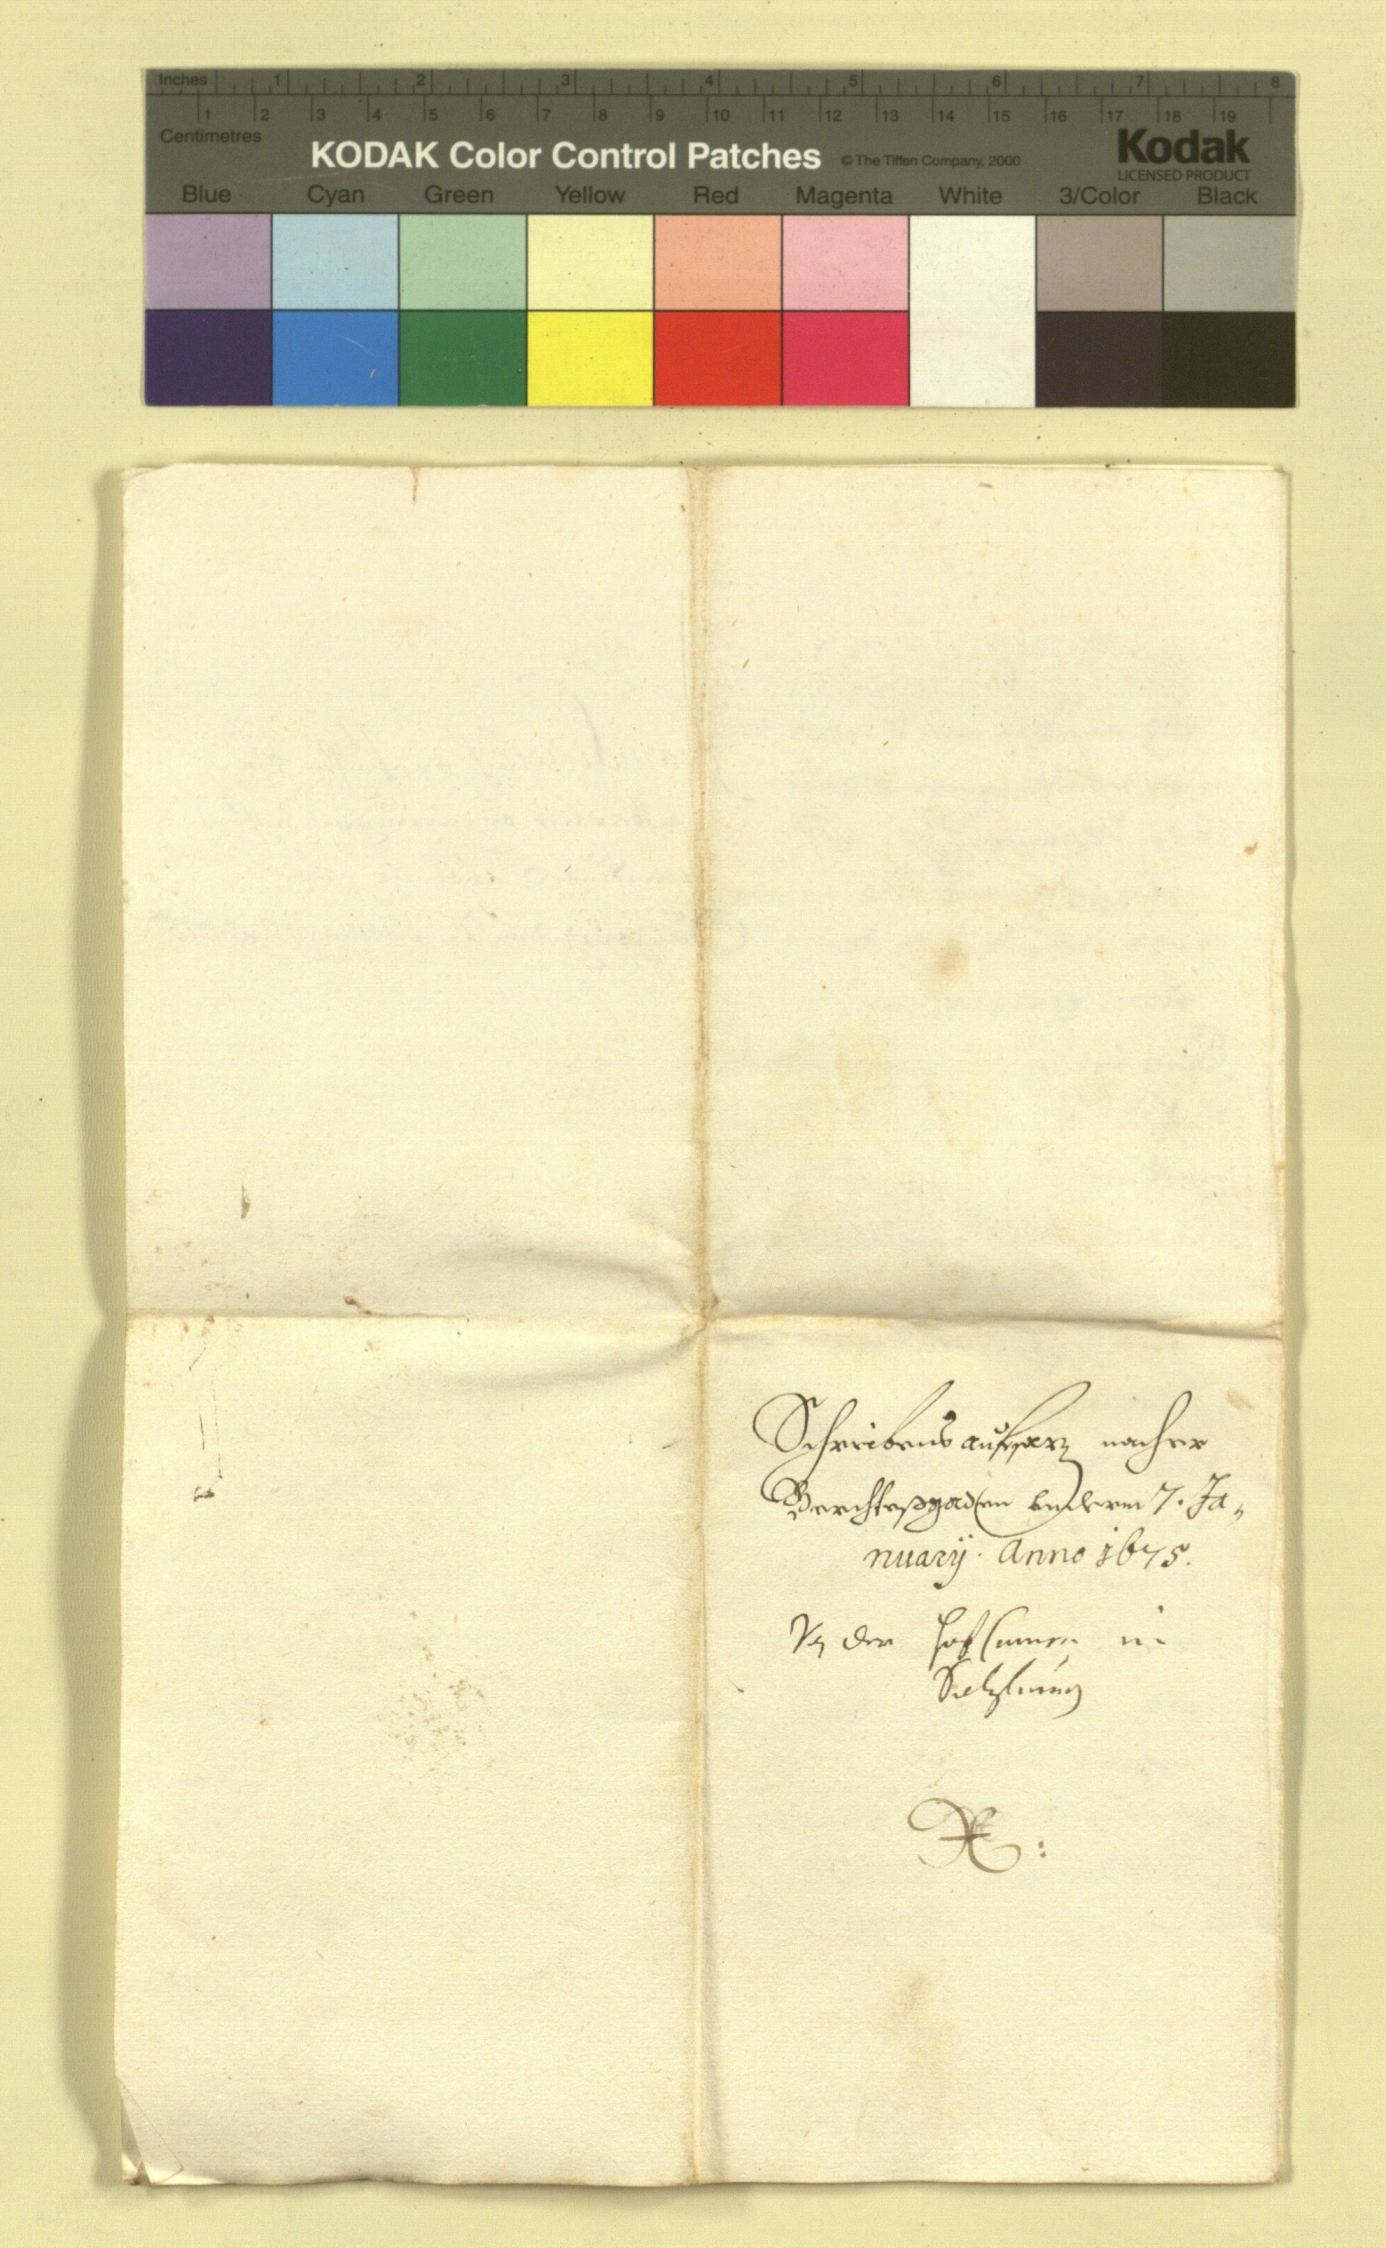 Inches 1 2 3 4 5 6 7 8
1 2 3 4 5 6 7 8 9 10 11 12 13 14 15 16 17 18 19
Centimetres
KODAK Color Control Patches © The Tiffen Company, 2000 Kodak
LICENSED PRODUCT
Blue Cyan Green Yellow Red Magenta White 3/Color Black
Schreibens aufsaz nacher
Berchtesgaden underm 7. Ja„
nuarÿ. Anno 1675.
der Hof Camer in
Salzburg